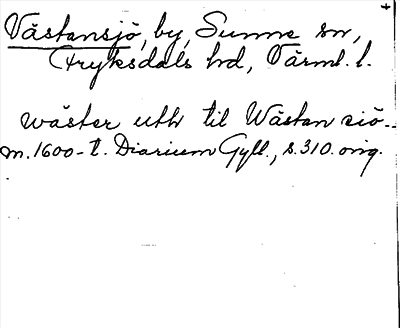 Västansjö, by, Sunne sn,
Fryksdals hd, Värml. l.
wäster uth til Wästan siö..
m. 1600-t. Diarium Gyll., s. 310. orig.